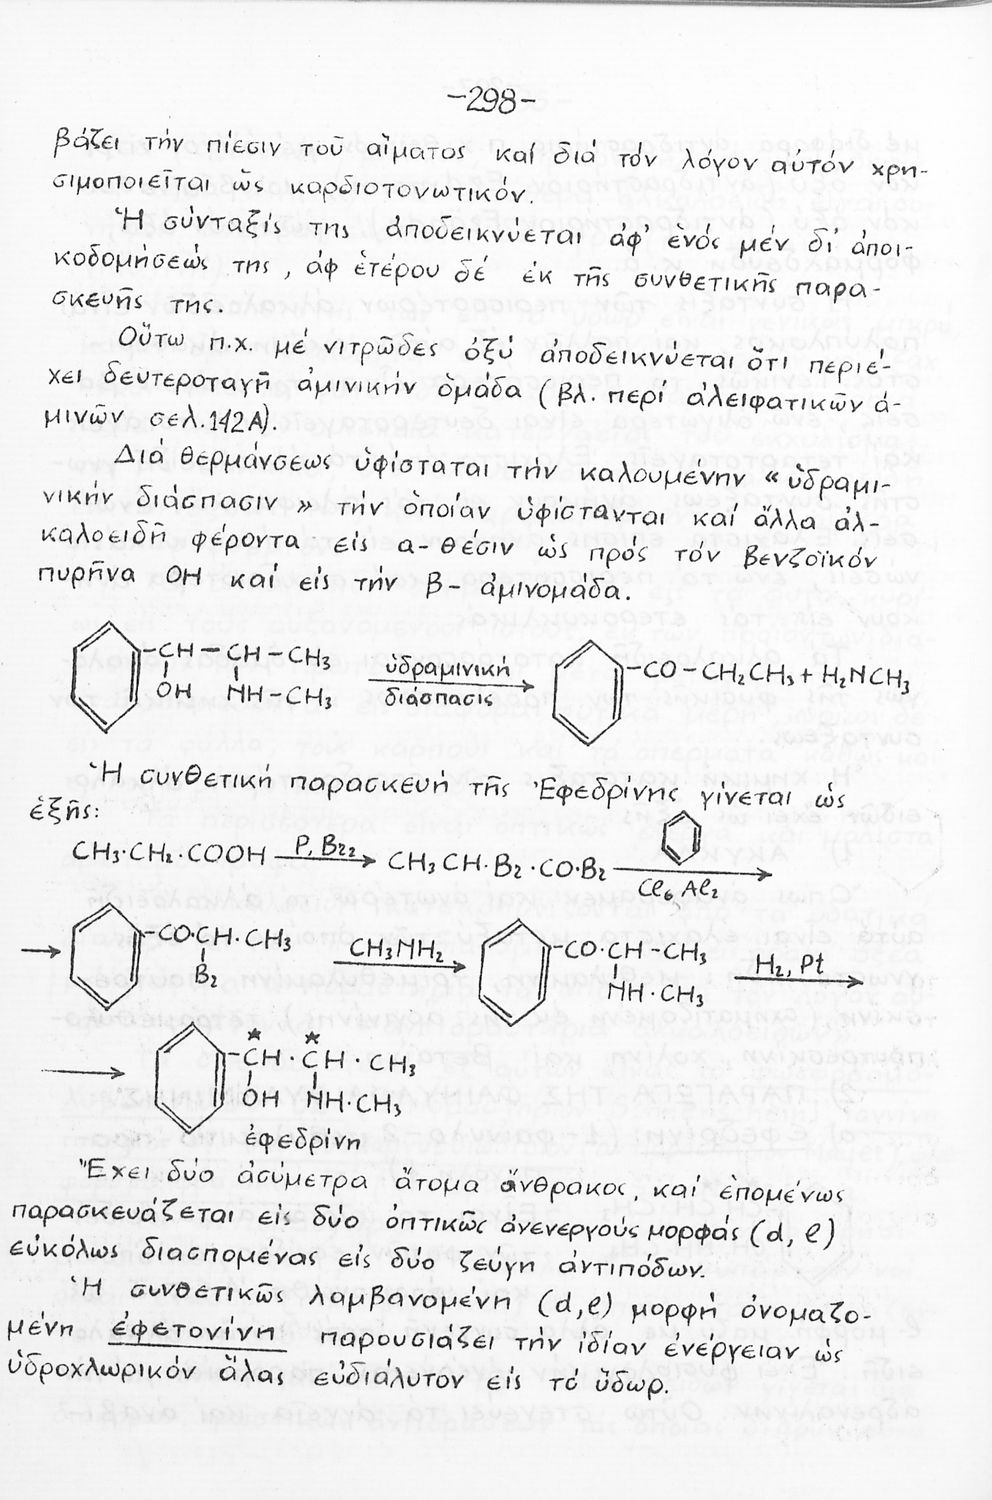 -298-
βάζει τήν πίεσιν τοῦ αἵματος καί διά τόν λόγον αὐτόν χρη-
σιμοποιεῖται ὡς καρδιοτονωτικόν.
Ἡ σύνταξίς της ἀποδεικνύεται ἀφ' ἑνός μέν δι' ἀποι-
κοδομήσεώς της, ἀφ ἑτέρου δέ ἐκ τῆς συνθετικῆς παρα-
σκευῆς της.
Οὕτω π.χ. μέ νιτρῶδες ὀξύ ἀποδεικνύεται ὅτι περιέ-
χει δευτεροταγῆ ἀμινικήν ὁμάδα (βλ. περί ἀλειφατικῶν ἀ-
μινῶν σελ. 142A).
Διά θερμάνσεως ὑφίσταται τήν καλουμένην « ὑδραμι-
νικήν διάσπασιν » τήν ὁποίαν ὑφίστανται καί ἄλλα ἀλ-
καλοειδῆ φέροντα εἰς α- θέσιν ὡς πρός τόν βενζοϊκόν
πυρῆνα OH καί εἰς τήν β- ἀμινομάδα.
-CH-CH-CH₃ ὑδραμινική -CO-CH₂CH₃ + H₂NCH₃
OH NH-CH₃ διάσπασις
Ἡ συνθετική παρασκευή τῆς Ἐφεδρίνης γίνεται ὡς
ἑξῆς:
CH₃·CH₂·COOH P, Br₂ CH₃CH·Br·CO·Br
Cl₆Al₂
-CO·CH·CH₃ CH₃NH₂ -CO·CH-CH₃ H₂, Pt
Br NH·CH₃
* *
-CH·CH·CH₃
OH NH·CH₃
ἐφεδρίνη
Ἔχει δύο ἀσύμετρα ἄτομα ἄνθρακος, καί ἑπομένως
παρασκευάζεται εἰς δύο ὀπτικῶς ἀνενεργούς μορφάς (d, l)
εὐκόλως διασπομένας εἰς δύο ζεύγη ἀντιπόδων.
Ἡ συνθετικῶς λαμβανομένη (d,l) μορφή ὀνομαζο-
μένη ἐφετονίνη παρουσιάζει τήν ἰδίαν ἐνέργειαν ὡς
ὑδροχλωρικόν ἅλας εὐδιάλυτον εἰς τό ὕδωρ.